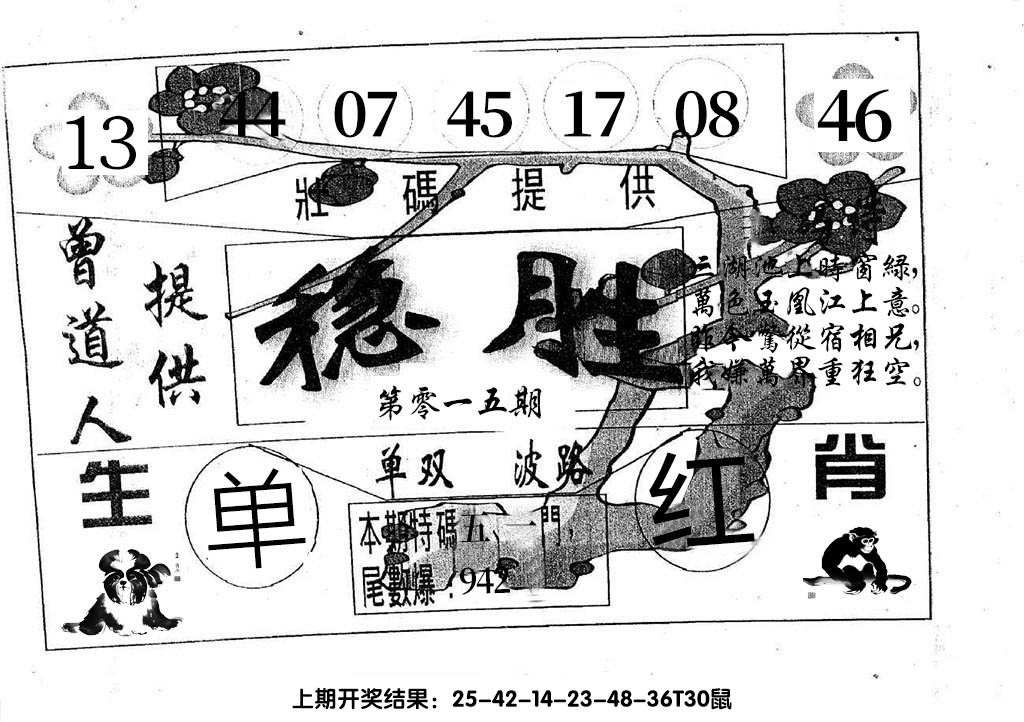 13 44 07 45 17 08 46
壯碼提供
曾道人
提供
稳胜
第零一五期
三湖池上時窗綠，
萬色玉凰江上意。
昨今驚從宿相兄，
我嫌萬界重狂空。
单双 波路
生肖
单
红
本期特碼五、一門，
尾數爆：942
上期开奖结果：25-42-14-23-48-36T30鼠